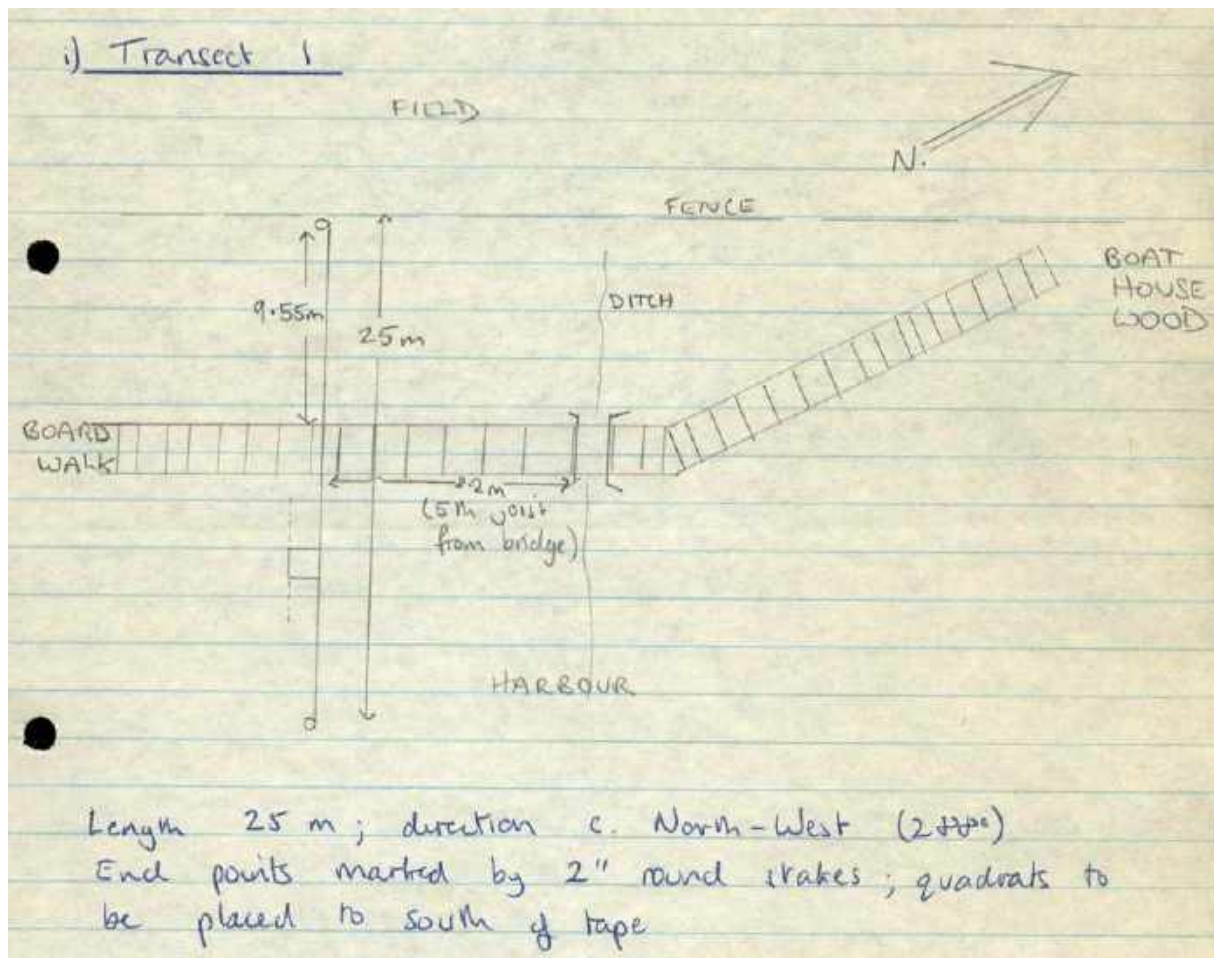 i) Transect 1
FIELD
N.
FENCE
BOAT
HOUSE
WOOD
DITCH
9.55m
25m
BOARD
WALK
2m
(5th joist
from bridge)
HARBOUR
Length 25 m; direction c. North-West
End points marked by 2" round stakes; quadrats to
be placed to south of tape